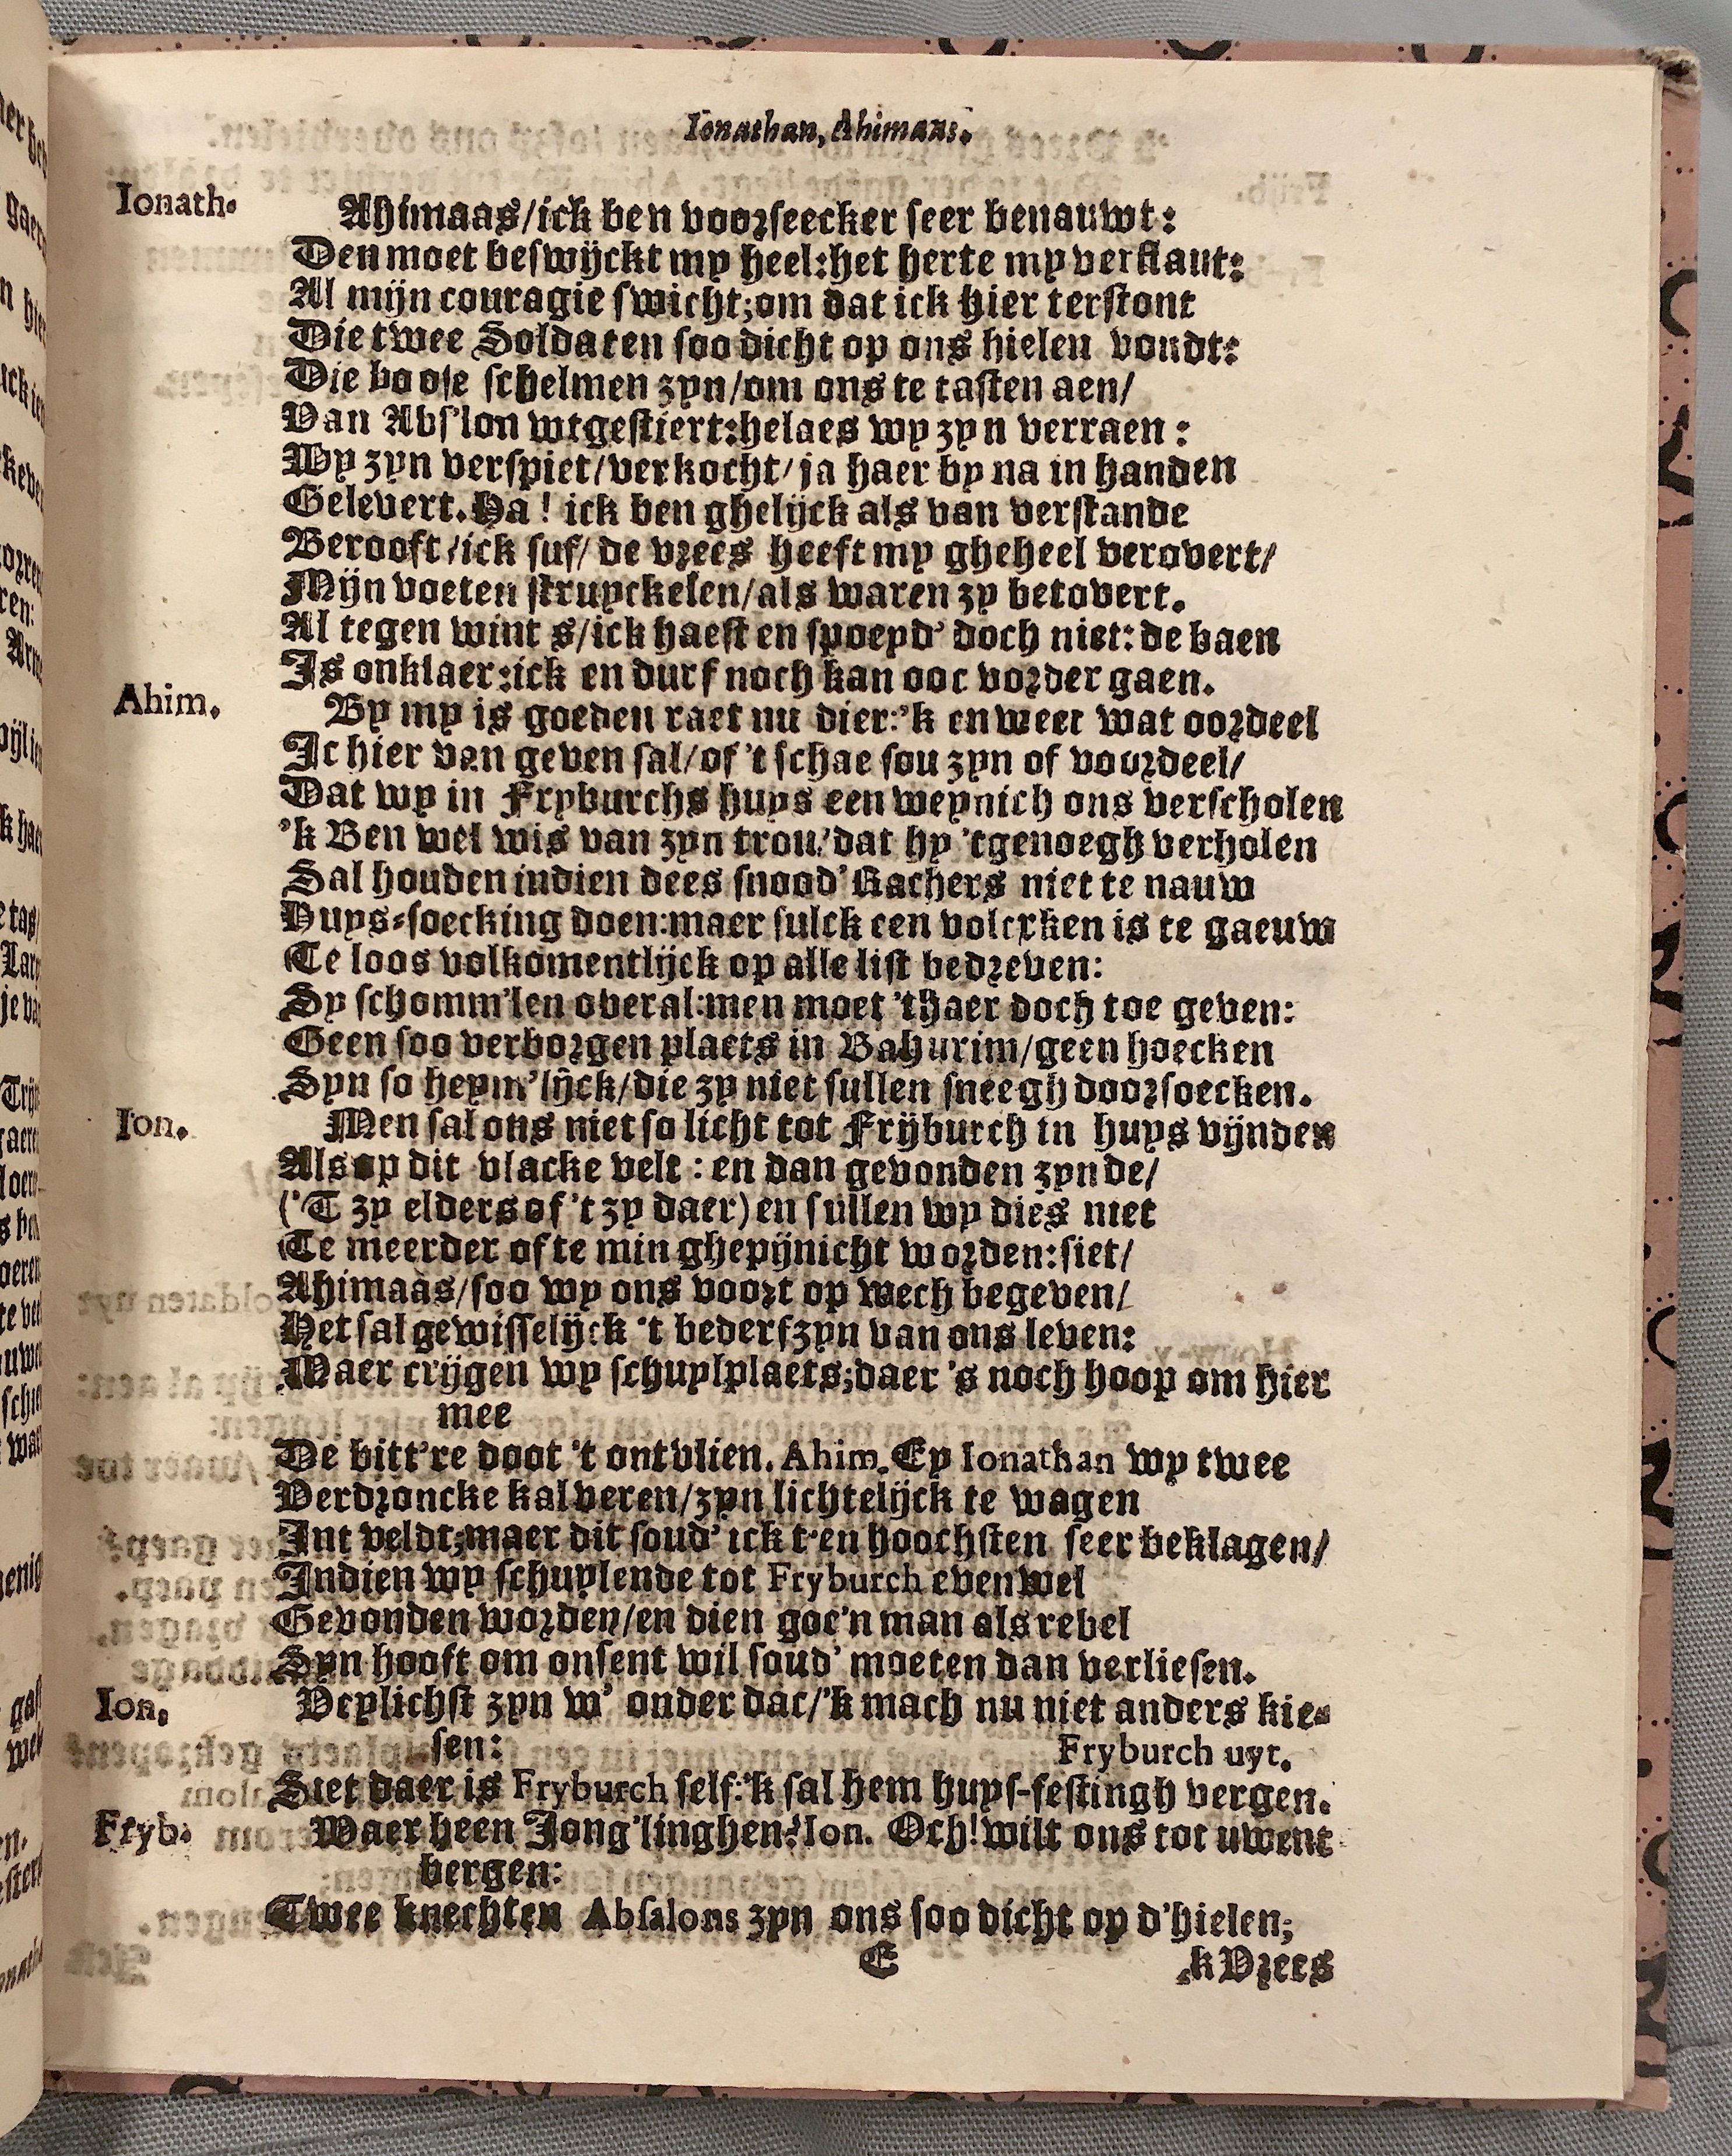 Ionathan, Ahimaas.
Ionath. Ahimaas/ick ben voorseecker seer benauwt:
Den moet beswijckt my heel:het herte my verflaut:
Al mijn couragie swicht;om dat ick hier terstont
Die twee Soldaten soo dicht op ons hielen vondt:
Die boose schelmen zyn/om ons te tasten aen/
Van Abs'lon wtgestiert:helaes wy zyn verraen:
Wy zyn verspiet/verkocht/ja haer by na in handen
Gelevert. Ha! ick ben ghelijck als van verstande
Berooft/ick suf/de vrees heeft my gheheel verovert/
Mijn voeten struyckelen/als waren zy betovert.
Al tegen wint s/ick haest en spoeyd' doch niet: de baen
Is onklaer:ick en durf noch kan ooc vorder gaen.
Ahim. By my is goeden raet nu dier:'k en weet wat oordeel
Ic hier van geven sal/of 't schae sou zyn of voordeel/
Dat wy in Fryburchs huys een weynich ons verscholen
'k Ben wel wis van zyn trou/dat hy 'tgenoegh verholen
Sal houden indien dees snood' Rachers niet te nauw
Huys-soecking doen:maer sulck een volcxken is te gaeuw
Te loos volkomentlijck op alle list bedreven:
Sy schomm'len overal:men moet 'thaer doch toe geven:
Geen soo verborgen plaets in Bahurim/geen hoecken
Syn so heym'lijck/die zy niet sullen sneegh doorsoecken.
Ion. Men sal ons niet so licht tot Frijburch in huys vijnden
Als op dit vlacke velt: en dan gevonden zynde/
('T zy elders of 't zy daer) en sullen wy dies niet
Te meerder ofte min ghepijnicht worden:siet/
Ahimaas/soo wy ons voort op wech begeven/
Het sal gewisselijck 't bederf zyn van ons leven:
Maer crijgen wy schuylplaets;daer 's noch hoop om hier
mee
De bitt're doot 't ontvlien. Ahim. Ey Ionathan wy twee
Verdroncke kalveren/zyn lichtelijck te wagen
Int veldt;maer dit soud' ick t'en hoochsten seer beklagen/
Indien wy schuylende tot Fryburch evenwel
Gevonden worden/en dien goe'n man als rebel
Syn hooft om onsent wil soud' moeten dan verliesen.
Ion. Veylichst zyn w' onder dac/'k mach nu niet anders kie-
sen: Fryburch uyt.
Siet daer is Fryburch self:'k sal hem huys-festingh vergen.
Fryb. Waer heen Jong'linghen? Ion. Och! wilt ons tot uwent
bergen:
Twee knechten Absalons zyn ons soo dicht op d'hielen;
E 'k Vrees